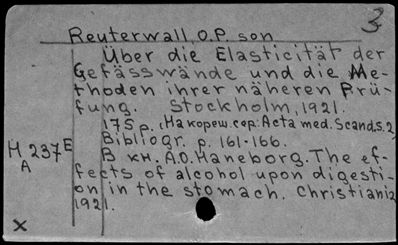 3
Reuterwall, O.P. son
Über die Elasticität der
Gefässwände und die Me-
thoden ihrer näheren Prü-
fung. Stockholm, 1921.
175 p. (На корешк. сер: Acta med. Scand. S. 2
Bibliogr. p. 161-166.
H 237 E
A
В кн. A.O. Haneborg. The ef-
fects of alcohol upon digesti-
on in the stomach. Christiania
1921.
x